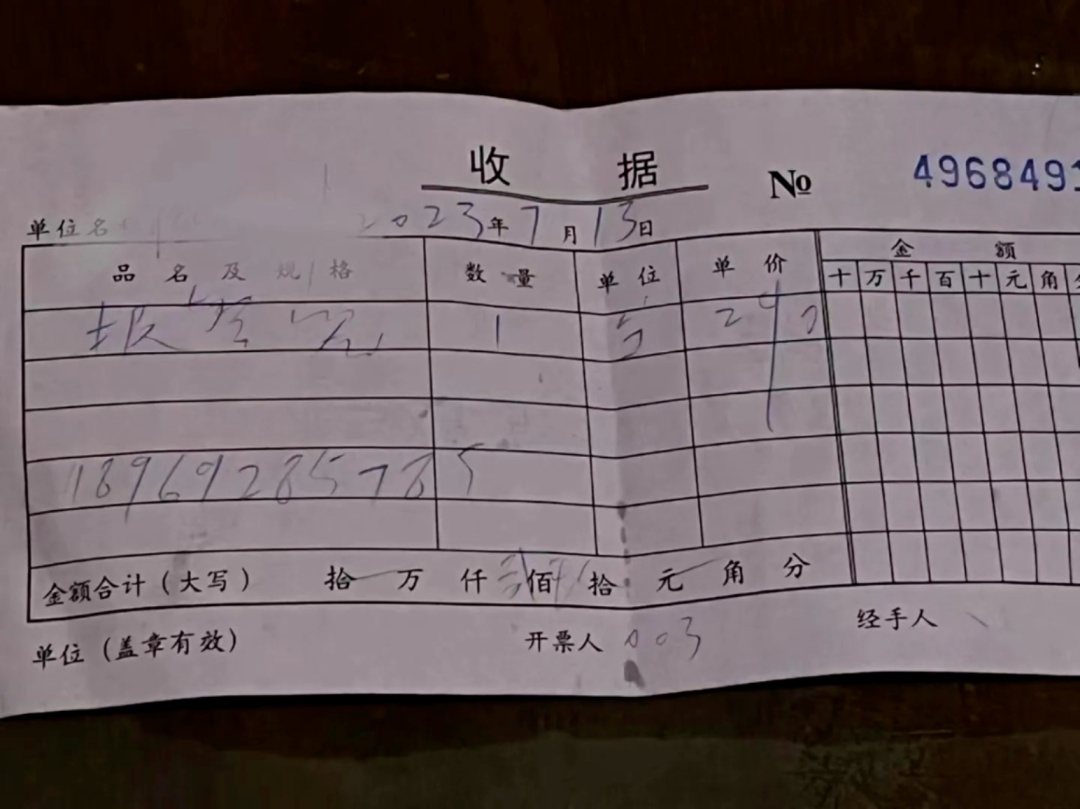 收 据 № 4968491
单位名 2023年7月13日
品名及规格 数量 单位 单价 金额
十 万 千 百 十 元 角
1 290
18969285785
金额合计(大写) 拾 万 仟 贰佰 拾 元 角 分
单位(盖章有效) 开票人 003 经手人